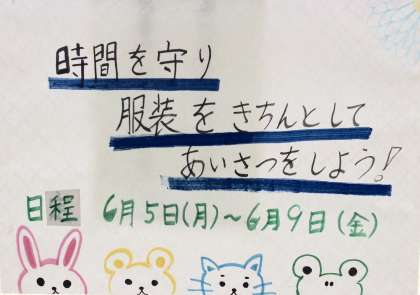 時間を守り
服装をきちんとして
あいさつをしよう!
日程 6月5日(月)～6月9日(金)